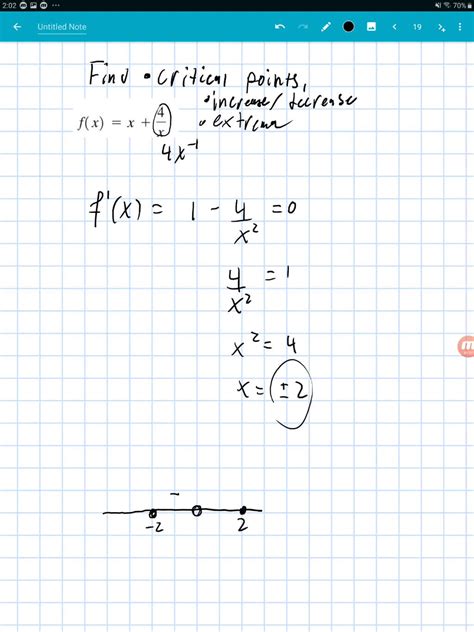 2:02 70%
Untitled Note 19
Find • critical points,
• increase/decrease
f(x) = x + (4/x) • extrema
4x⁻¹
f'(x) = 1 - 4/x² = 0
4/x² = 1
x² = 4
x = ±2
-
-2 2